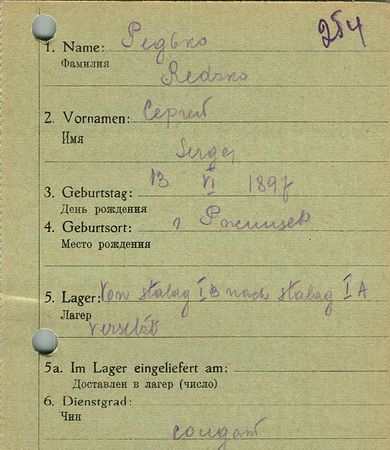 254
1. Name: Редько
Фамилия
Redsko
2. Vornamen: Сергей
Имя
Sergej
13 VI 1897
3. Geburtstag:
День рождения
4. Geburtsort: г
Место рождения
5. Lager: Von Stalag I B nach Stalag I A
Лагер
versetzt
5a. Im Lager eingeliefert am:
Доставлен в лагер (число)
6. Dienstgrad:
Чин
солдат